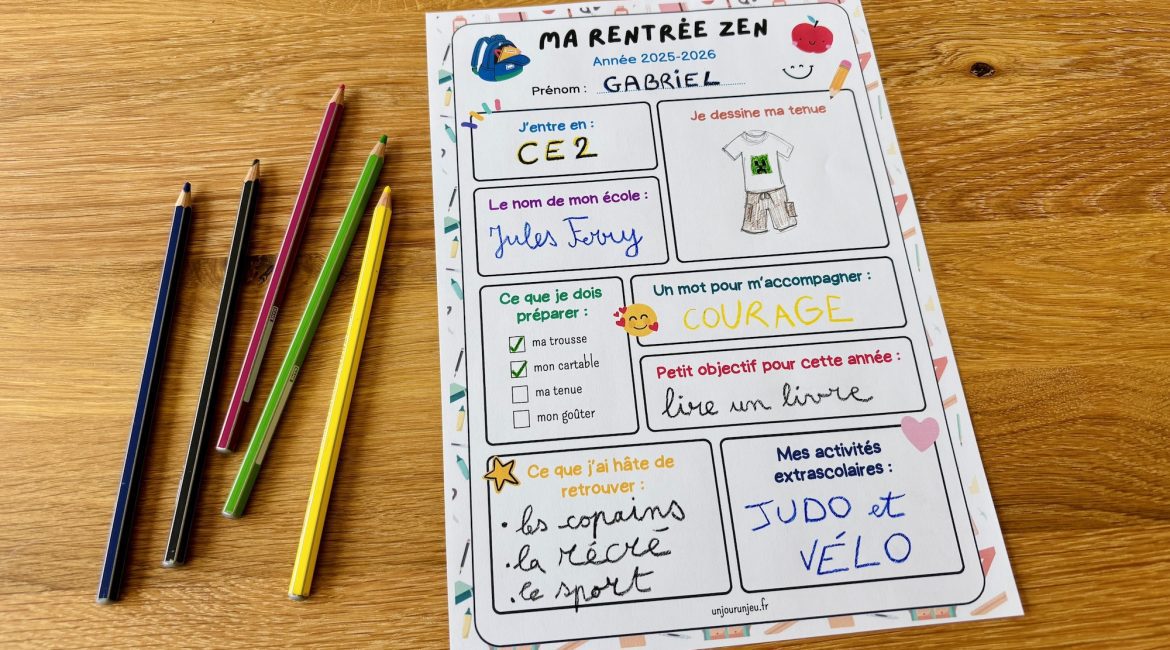 MA RENTRÉE ZEN
Année 2025-2026
Prénom : GABRIEL
J'entre en :
CE2
Je dessine ma tenue
Le nom de mon école :
Jules Ferry
Ce que je dois
préparer :
ma trousse
mon cartable
ma tenue
mon goûter
Un mot pour m'accompagner :
COURAGE
Petit objectif pour cette année :
lire un livre
Ce que j'ai hâte de
retrouver :
• les copains
• la récré
• le sport
Mes activités
extrascolaires :
JUDO et
VÉLO
unjourunjeu.fr